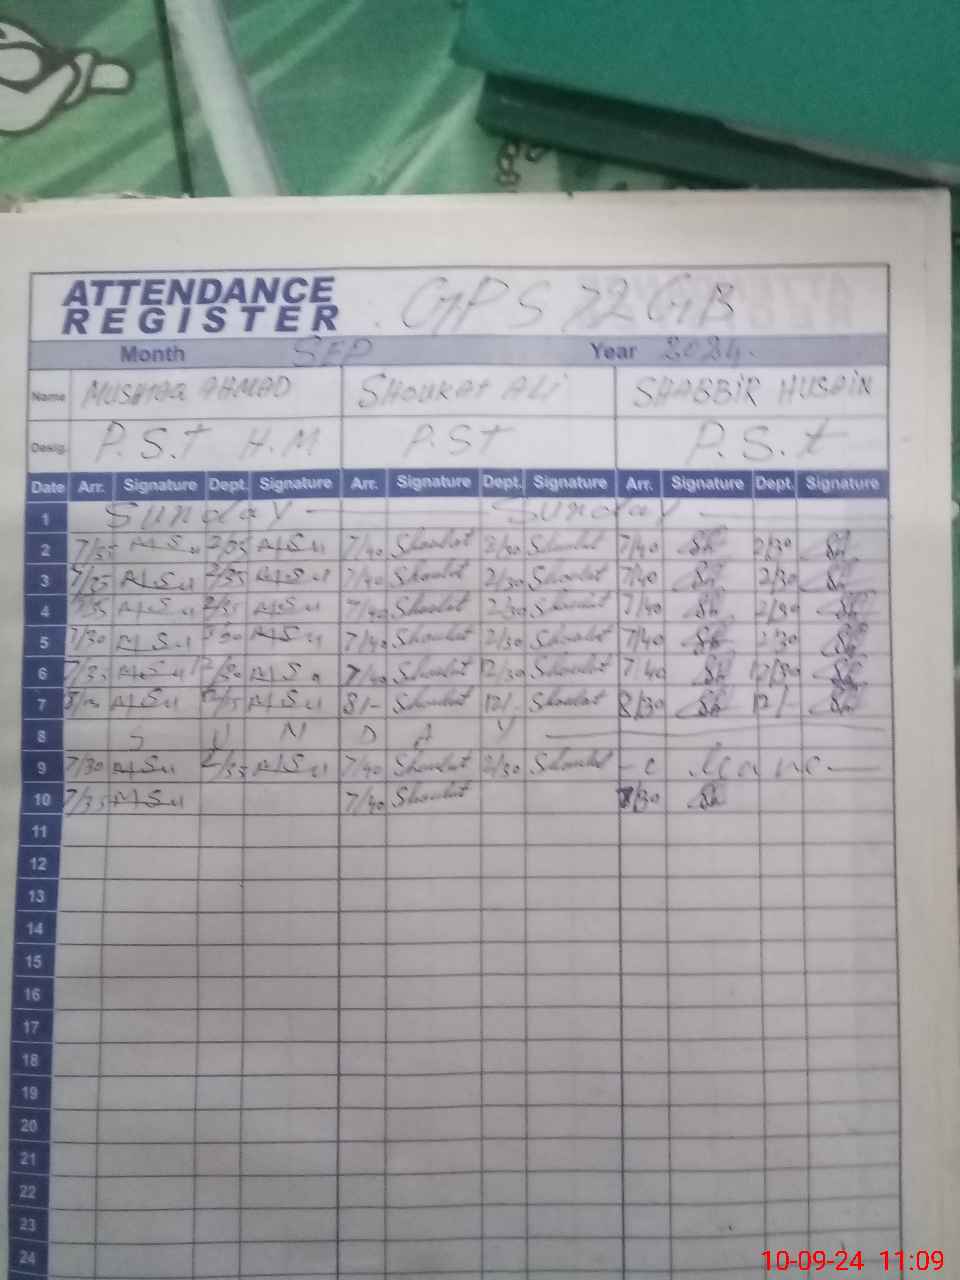 ATTENDANCE
REGISTER
GPS 72 GB
Month SEP Year 2024.
Name MUSHTAQ AHMAD SHOUKAT ALi SHABBIR HUSAIN
Desig. P.S.T H.M P.ST P.S.t
Date Arr. Signature Dept. Signature Arr. Signature Dept. Signature Arr. Signature Dept. Signature
1 Sunday Sunday
2 7/35 2/35 7/40 Shoukat 2/30 Shoukat 7/40 Sh 2/30 Sh
3 7/35 2/35 7/40 Shoukat 2/30 Shoukat 7/40 Sh 2/30 Sh
4 7/35 2/35 7/40 Shoukat 2/30 Shoukat 7/40 Sh 2/30 Sh
5 7/30 7/40 Shoukat 2/30 Shoukat 7/40 Sh 2/30 Sh
6 7/35 12/30 7/40 Shoukat 12/30 Shoukat 7/40 Sh 12/30 Sh
7 12/15 8/- Shoukat 12/- Shoukat 8/30 Sh 12/- Sh
8 S U N D A Y
9 7/30 2/35 7/40 Shoukat 2/30 Shoukat
10 7/35 7/40 Shoukat 7/30 Sh
11
12
13
14
15
16
17
18
19
20
21
22
23
24
10-09-24 11:09